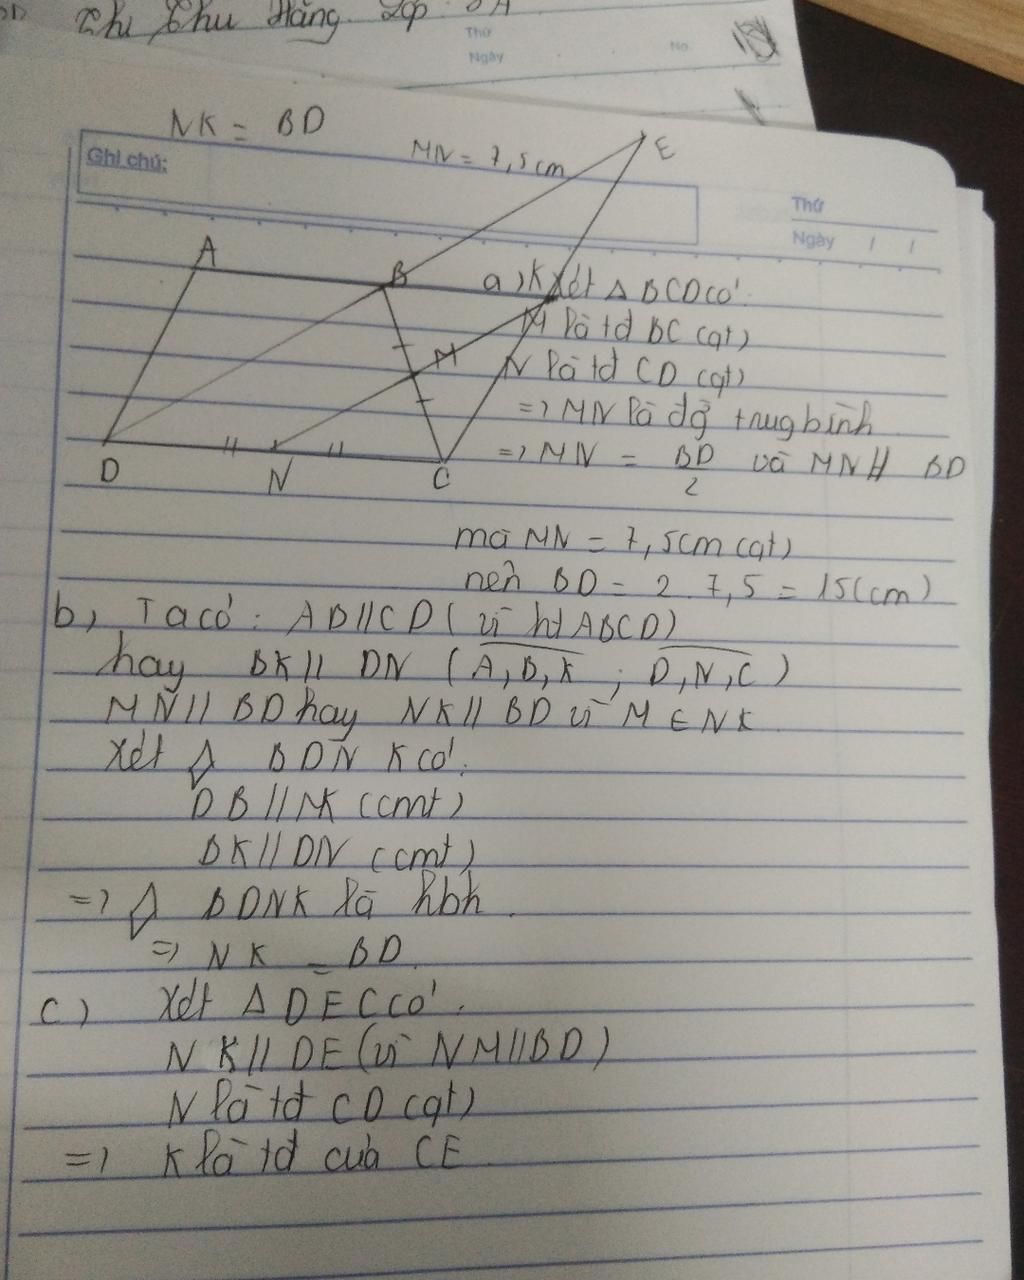 Thị Thu Hằng. Lớp 8A
Thứ
Ngày
No.
NK = BD
MN = 7,5cm
E
Ghi chú:
Thứ
Ngày / /
A
B
K
a) Xét Δ BCD có:
M là tđ BC (gt)
M
N là tđ CD (gt)
=> MN là đg trug bình
D
N
C
=> MN = BD/2 và MN // BD
mà MN = 7,5cm (gt)
nên BD = 2 . 7,5 = 15 (cm)
b) Ta có : AB // CD ( vì ht ABCD)
hay BK // DN ( A, B, K ; D, N, C )
MN // BD hay NK // BD vì M ∈ NK
Xét ◊ BDNK có:
DB // NK (cmt)
BK // DN (cmt)
=> ◊ BDNK là hbh .
=> NK = BD.
c) Xét Δ DEC có :
NK // DE (vì NM // BD)
N là tđ CD (gt)
=> K là tđ của CE